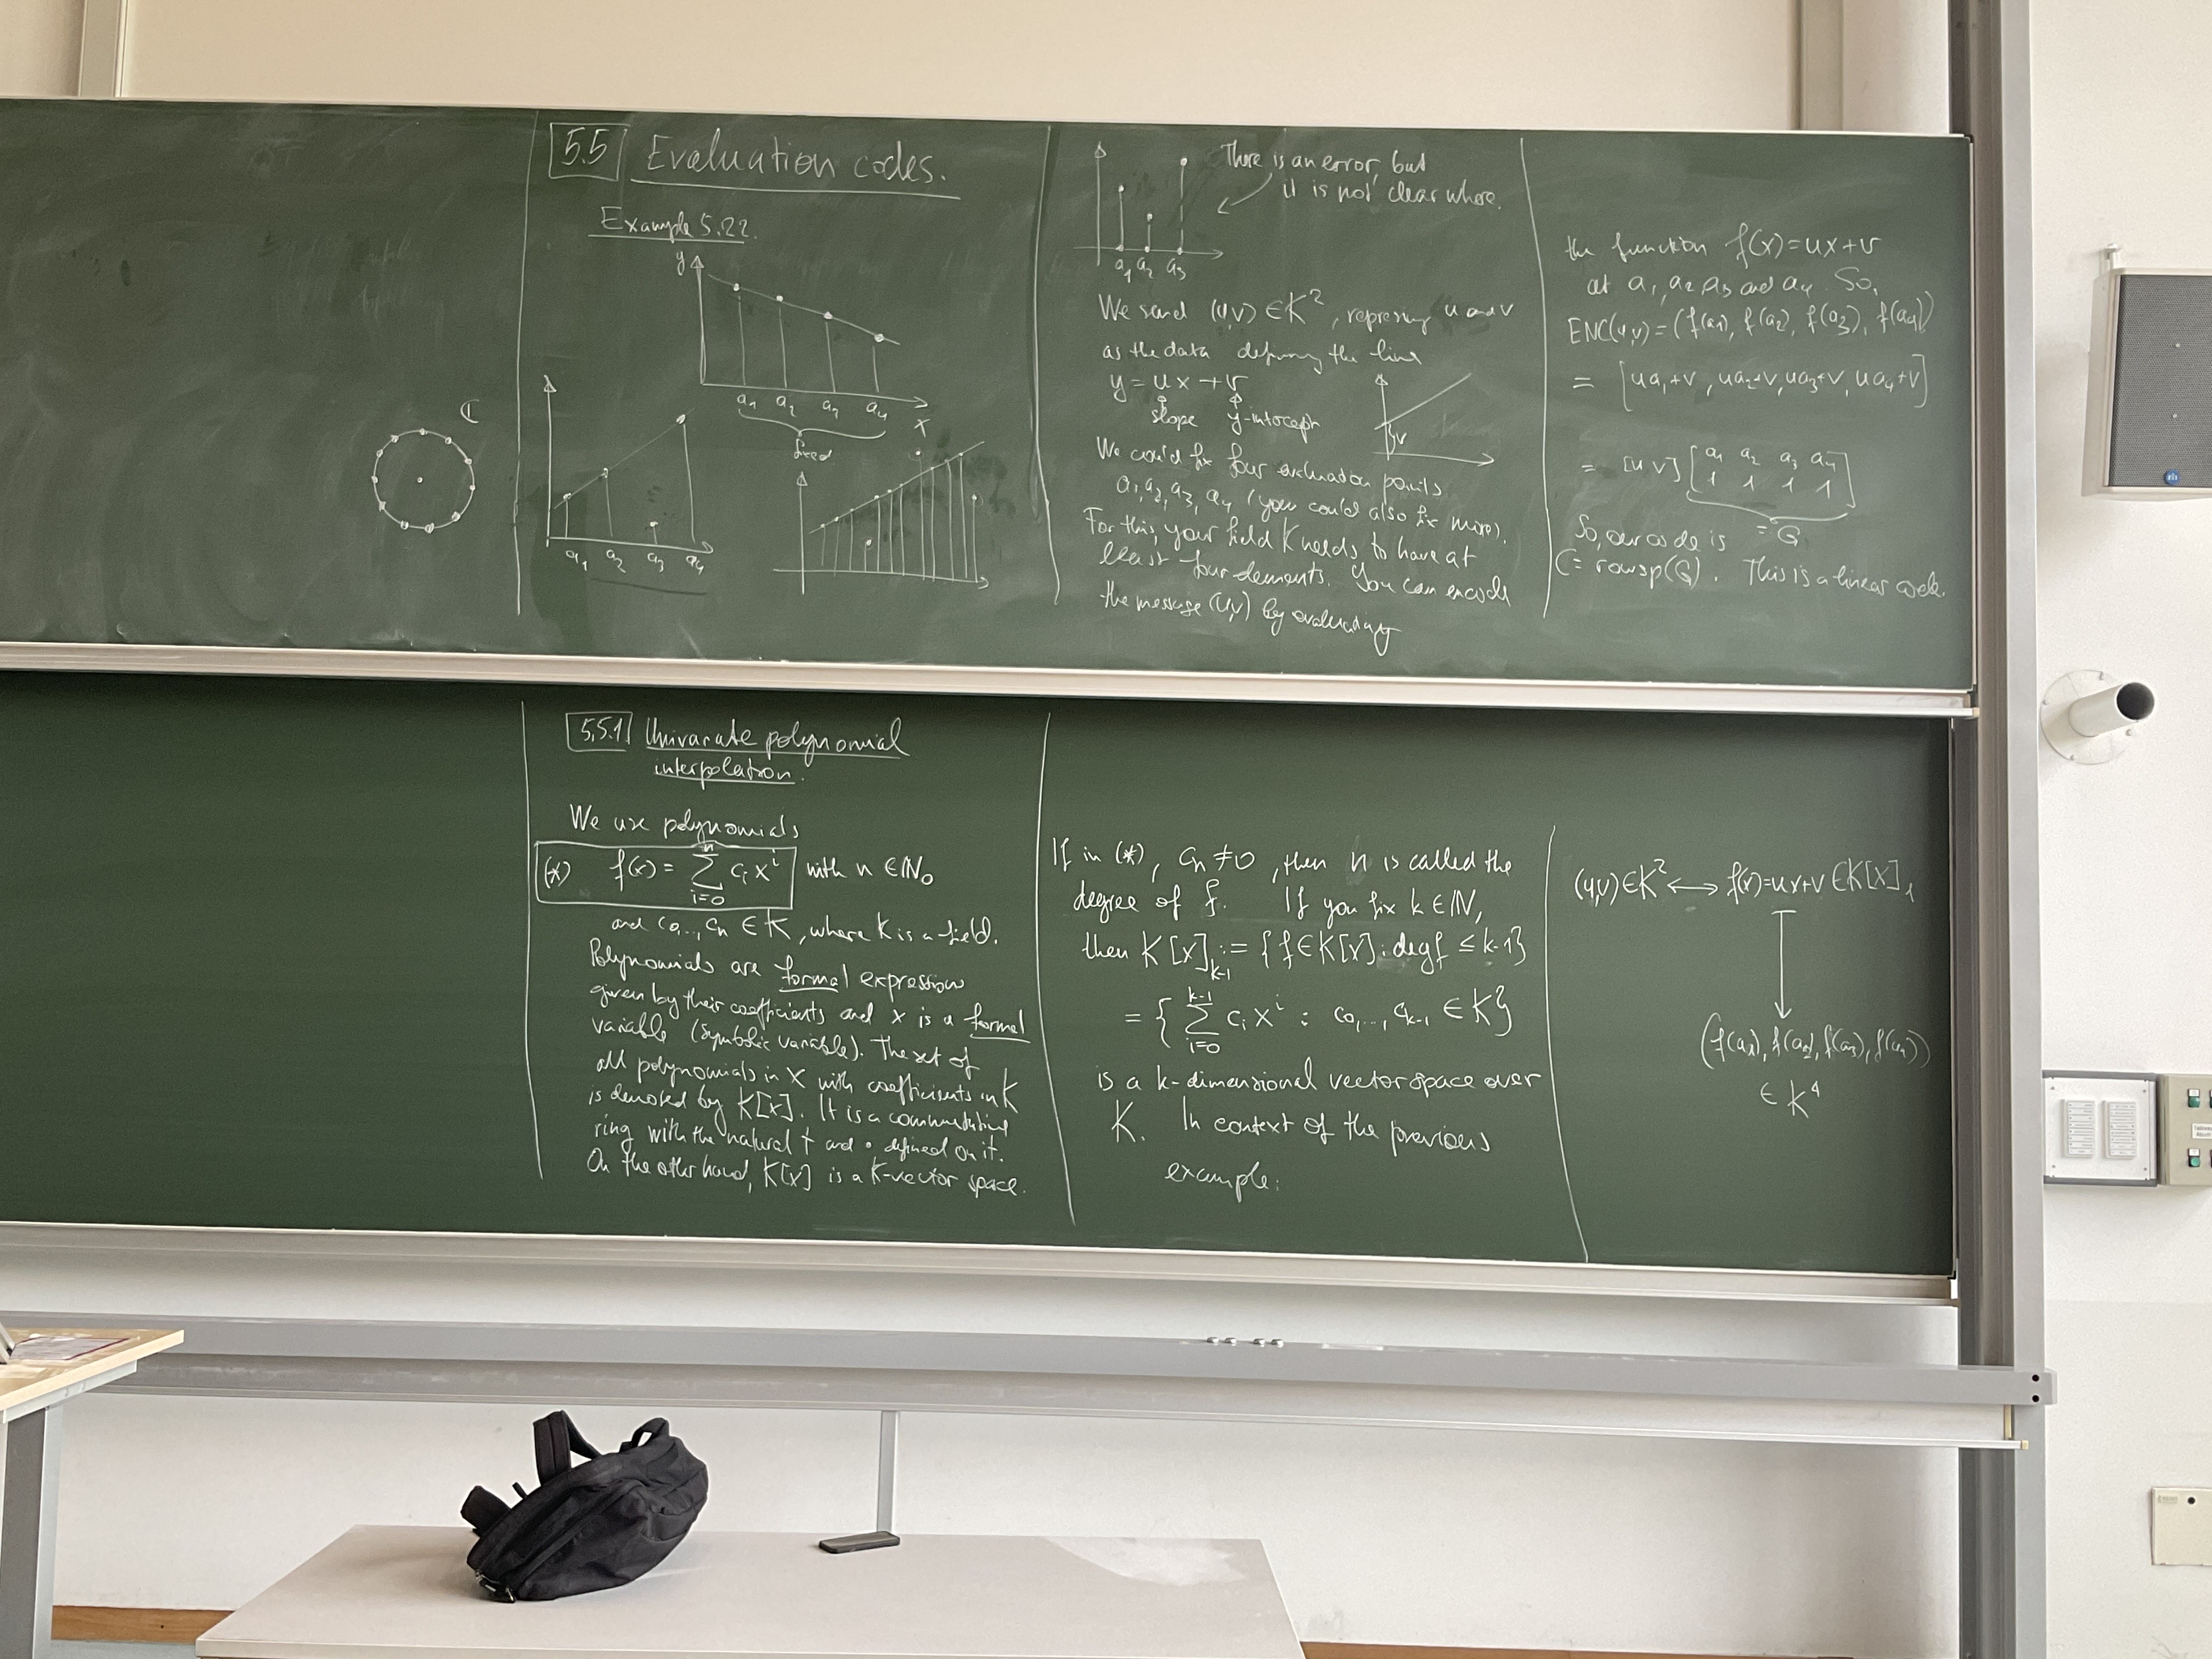 5.5 Evaluation codes.
Example 5.22.
y
a1 a2 a3 a4
x
fixed
ℂ
a1 a2 a3 a4
There is an error, but
it is not clear where.
a1 a2 a3
We send (u,v) ∈ K²,
u and v
as the data defining the line
y = ux + v
slope y-intercept
v
We could fix four evaluation points
a1, a2, a3, a4 (you could also fix more).
For this, your field K needs to have at
least four elements. You can encode
the message (u,v) by evaluating
the function f(x) = ux+v
at a1, a2, a3 and a4. So,
ENC(u,v) = (f(a1), f(a2), f(a3), f(a4))
= [ua1+v, ua2+v, ua3+v, ua4+v]
= [u v] [a1 a2 a3 a4
1 1 1 1]
= G
So, our code is
C = rowsp(G). This is a linear code.
5.5.1 Univariate polynomial
interpolation.
We use polynomials
(*) f(x) = ∑_{i=0}^{n} c_i x^i with n ∈ ℕ₀
and c0,..., cn ∈ K, where K is a field.
Polynomials are formal expression
given by their coefficients and x is a formal
variable (symbolic variable). The set of
all polynomials in x with coefficients in K
is denoted by K[x]. It is a commutative
ring with the natural + and · defined on it.
On the other hand, K[x] is a K-vector space.
If in (*), cn ≠ 0, then n is called the
degree of f. If you fix k ∈ ℕ,
then K[x]_{k-1} := {f ∈ K[x] : deg f ≤ k-1}
= { ∑_{i=0}^{k-1} c_i x^i : c0,..., ck-1 ∈ K}
is a k-dimensional vector space over
K. In context of the previous
example:
(u,v) ∈ K² ⟷ f(x) = ux+v ∈ K[x]_1
(f(a1), f(a2), f(a3), f(a4))
∈ K⁴